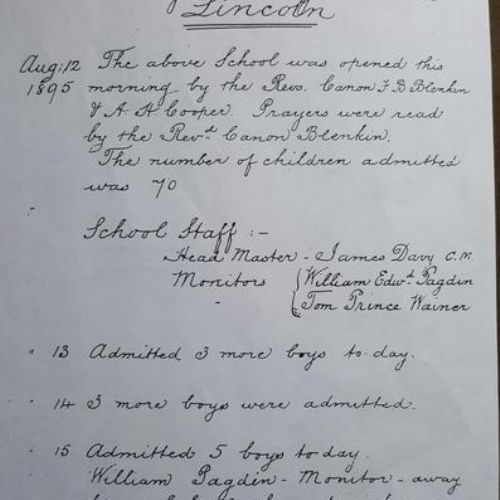 Lincoln
Aug: 12 The above School was opened this
1895 morning by the Revs. Canon F B Blenkin
& A. H Cooper. Prayers were read
by the Revd. Canon Blenkin.
The number of children admitted
was 70
School Staff :-
Head Master - James Davy C.M.
Monitors { William Edwd. Pagdin
Tom Prince Wainer
13 Admitted 3 more boys to-day.
14 3 more boys were admitted.
15 Admitted 5 boys to day.
William Pagdin - Monitor - away